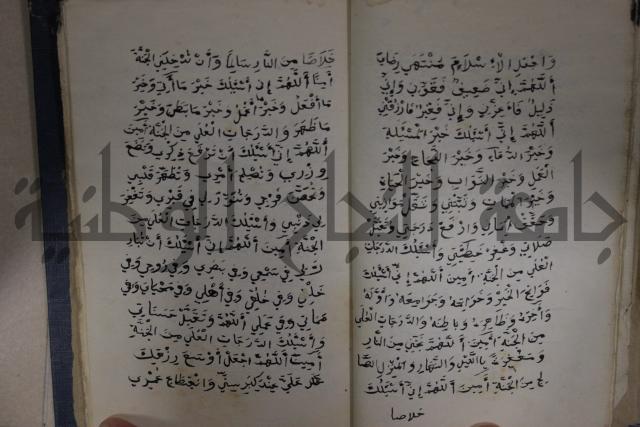 وَاجْعَلِ الْاِسْلَامَ مُنْتَهٰى رِضَائِي
اَللّٰهُمَّ اِنِّي ضَعِيفٌ فَقَوِّنِي وَاِنِّي
ذَلِيلٌ فَاَعِزَّنِي وَاِنِّي فَقِيرٌ فَارْزُقْنِي
اَللّٰهُمَّ اِنِّي اَسْئَلُكَ خَيْرَ الْمَسْئَلَةِ
وَخَيْرَ الدُّعَاءِ وَخَيْرَ النَّجَاحِ وَخَيْرَ
الْعَمَلِ وَخَيْرَ الثَّوَابِ وَخَيْرَ الْحَيَاةِ
وَخَيْرَ الْمَمَاتِ وَثَبِّتْنِي وَثَقِّلْ مَوَازِينِي
وَحَقِّقْ اِيمَانِي وَارْفَعْ دَرَجَتِي وَتَقَبَّلْ
صَلَاتِي وَاغْفِرْ خَطِيئَتِي وَاَسْئَلُكَ الدَّرَجَاتِ
الْعُلٰى مِنَ الْجَنَّةِ اٰمِينَ اَللّٰهُمَّ اِنِّي اَسْئَلُكَ
فَوَاتِحَ الْخَيْرِ وَخَوَاتِمَهُ وَجَوَامِعَهُ وَاَوَّلَهُ
وَاٰخِرَهُ وَظَاهِرَهُ وَبَاطِنَهُ وَالدَّرَجَاتِ الْعُلٰى
مِنَ الْجَنَّةِ اٰمِينَ اَللّٰهُمَّ نَجِّنِي مِنَ النَّارِ
وَمَغْفِرَةً بِاللَّيْلِ وَالنَّهَارِ وَالْمَنْزِلَ الصَّا
لِحَ مِنَ الْجَنَّةِ اٰمِينَ اَللّٰهُمَّ اِنِّي اَسْئَلُكَ
خلاصا
خَلَاصًا مِنَ النَّارِ سَالِمًا وَاَنْ تُدْخِلَنِي الْجَنَّةَ
اٰمِنًا اَللّٰهُمَّ اِنِّي اَسْئَلُكَ خَيْرَ مَا اٰتِي وَخَيْرَ
مَا اَفْعَلُ وَخَيْرَ مَا اَعْمَلُ وَخَيْرَ مَا بَطَنَ وَخَيْرَ
مَا ظَهَرَ وَالدَّرَجَاتِ الْعُلٰى مِنَ الْجَنَّةِ اٰمِينَ
اَللّٰهُمَّ اِنِّي اَسْئَلُكَ اَنْ تَرْفَعَ ذِكْرِي وَتَضَعَ
وِزْرِي وَتُصْلِحَ اَمْرِي وَتُطَهِّرَ قَلْبِي
وَتُحَصِّنَ فَرْجِي وَتُنَوِّرَ لِي فِي قَبْرِي وَتَغْفِرَ
لِي ذَنْبِي وَاَسْئَلُكَ الدَّرَجَاتِ الْعُلٰى مِنَ
الْجَنَّةِ اٰمِينَ اَللّٰهُمَّ اِنِّي اَسْئَلُكَ اَنْ تُبَارِكَ
لِي فِي سَمْعِي وَفِي بَصَرِي وَفِي رُوحِي وَفِي
خَلْقِي وَفِي خُلُقِي وَفِي اَهْلِي وَفِي مَحْيَايَ وَفِي
مَمَاتِي وَفِي عَمَلِي اَللّٰهُمَّ وَتَقَبَّلْ حَسَنَاتِي
وَاَسْئَلُكَ الدَّرَجَاتِ الْعُلٰى مِنَ الْجَنَّةِ
اٰمِينَ اَللّٰهُمَّ اجْعَلْ اَوْسَعَ رِزْقِكَ
عَلَيَّ عِنْدَ كِبَرِ سِنِّي وَانْقِطَاعِ عُمْرِي
جامعة النجاح الوطنية